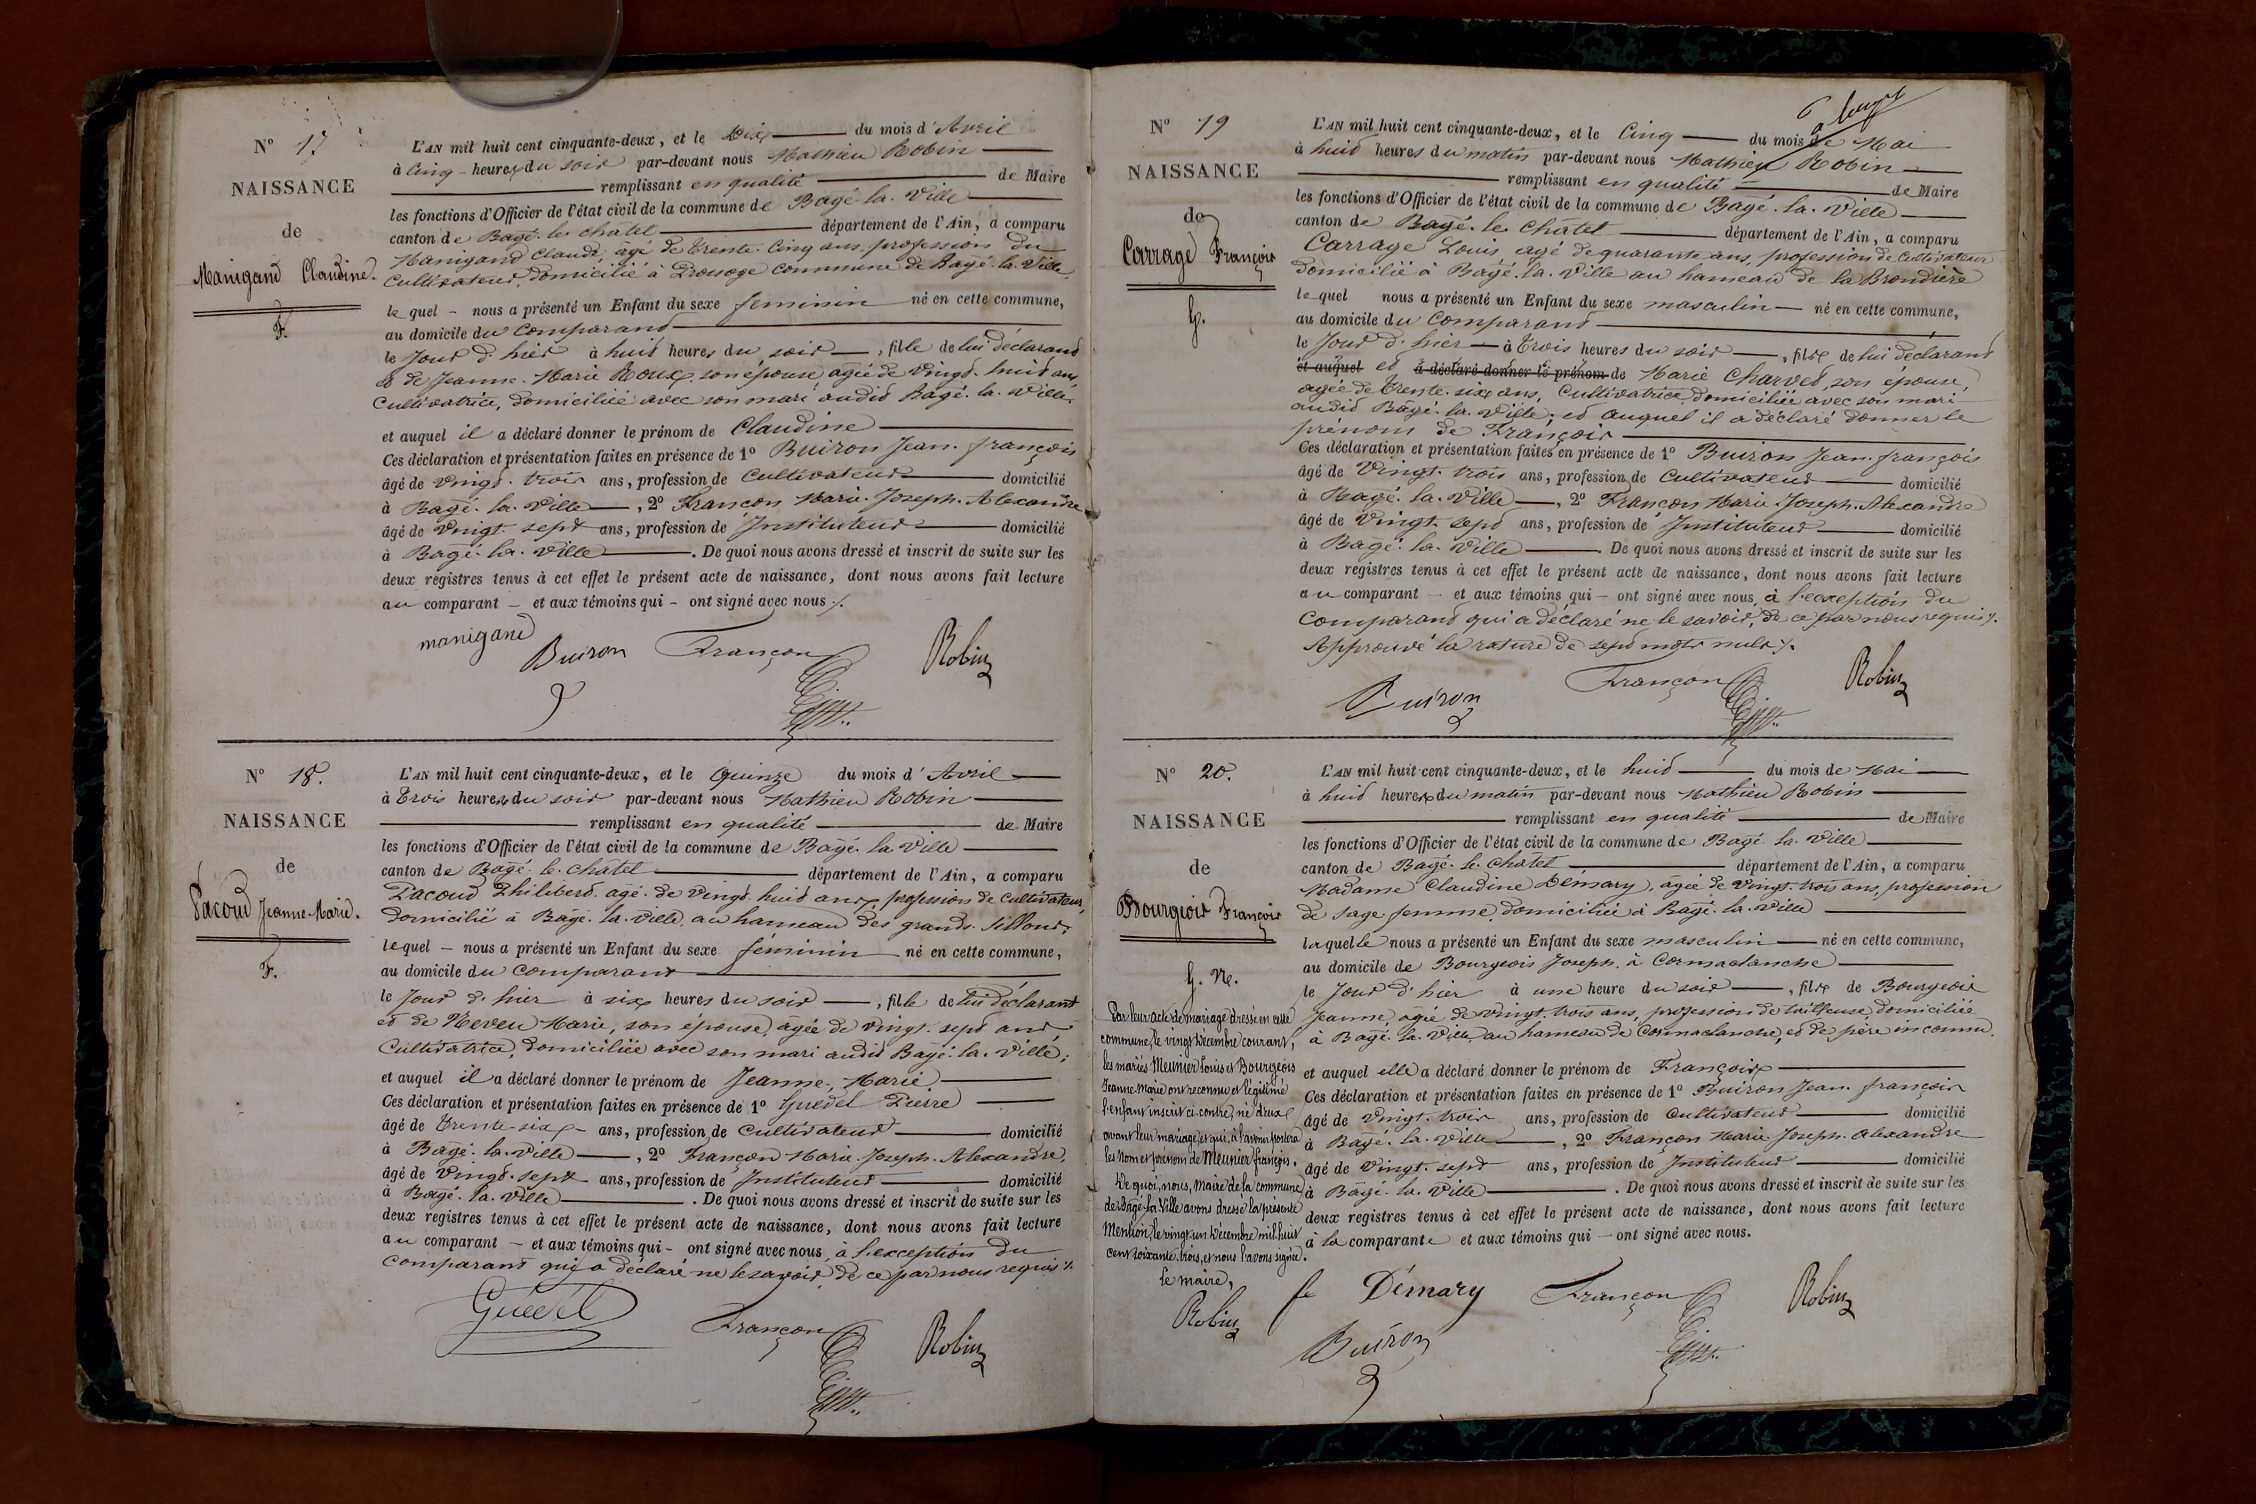 N° 17
NAISSANCE
de
Manigand Claudine.
F.
L'AN mil huit cent cinquante-deux, et le Dix du mois d'Avril
à Cinq heures du soir par-devant nous Mathieu Robin
remplissant en qualité de Maire
les fonctions d'Officier de l'état civil de la commune de Bagé-la-Ville
canton de Bagé-le-Châtel département de l'Ain, a comparu
Manigand Claude, âgé de Trente-Cinq ans, profession du
Cultivateur, domicilié à commune de Bagé-la-Ville
lequel nous a présenté un Enfant du sexe féminin né en cette commune,
au domicile du Comparand
le Jour d'hier à huit heures du soir, fille de lui déclarand
& de Jeanne-Marie Roux, son épouse, agée de Vingt-huit ans,
Cultivatrice, domiciliée avec son mari audit Bagé-la-Ville
et auquel il a déclaré donner le prénom de Claudine
Ces déclaration et présentation faites en présence de 1° Buiron Jean-françois
âgé de Vingt-trois ans, profession de Cultivateur domicilié
à Bagé-la-Ville, 2° Françon Marie-Joseph-Alexandre
âgé de Vingt-sept ans, profession de Instituteur domicilié
à Bagé-la-Ville. De quoi nous avons dressé et inscrit de suite sur les
deux registres tenus à cet effet le présent acte de naissance, dont nous avons fait lecture
au comparant et aux témoins qui ont signé avec nous.
manigand Buiron Françon Robin
N° 18.
NAISSANCE
de
Pacoud Jeanne-Marie.
F.
L'AN mil huit cent cinquante-deux, et le Quinze du mois d'Avril
à Trois heures du soir par-devant nous Mathieu Robin
remplissant en qualité de Maire
les fonctions d'Officier de l'état civil de la commune de Bagé-la-Ville
canton de Bagé-le-Châtel département de l'Ain, a comparu
Pacoud Philibert, agé de Vingt-huit ans, profession de cultivateur,
domicilié à Bagé-la-Ville, au hameau des grands-Sillons,
lequel nous a présenté un Enfant du sexe féminin né en cette commune,
au domicile du comparant
le Jour d'hier à six heures du soir, fille de lui déclarant
et de Neveu Marie, son épouse, âgée de Vingt-sept ans
Cultivatrice, domiciliée avec son mari audit Bagé-la-Ville;
et auquel il a déclaré donner le prénom de Jeanne-Marie
Ces déclaration et présentation faites en présence de 1° Guédel Pierre
âgé de Trente-six ans, profession de Cultivateur domicilié
à Bagé-la-Ville, 2° Françon Marie-Joseph-Alexandre,
âgé de Vingt-sept ans, profession de Instituteur domicilié
à Bagé-la-Ville. De quoi nous avons dressé et inscrit de suite sur les
deux registres tenus à cet effet le présent acte de naissance, dont nous avons fait lecture
au comparant et aux témoins qui ont signé avec nous, à l'exception du
comparant qui a déclaré ne le savoir, de ce par nous requis
Guédél Françon Robin
N° 19
NAISSANCE
de
Carrage François
G.
L'AN mil huit cent cinquante-deux, et le Cinq du mois de Mai
à huit heures du matin par-devant nous Mathieu Robin
remplissant en qualité de Maire
les fonctions d'Officier de l'état civil de la commune de Bagé-la-Ville
canton de Bagé-le-Châtel département de l'Ain, a comparu
Carrage Louis, agé de quarante ans, profession de Cultivateur
domicilié à Bagé-la-Ville au hameau de la Brondière
lequel nous a présenté un Enfant du sexe masculin né en cette commune,
au domicile du Comparand
le Jour d'hier à Trois heures du soir, fils de lui déclarand
et auquel et a déclaré donner le prénom de Marie Charvet, son épouse,
agée de Trente-six ans, Cultivatrice, domiciliée avec son mari
audit Bagé-la-Ville; et auquel il a déclaré donner le
prénom de François
Ces déclaration et présentation faites en présence de 1° Buiron Jean-françois
âgé de Vingt-trois ans, profession de Cultivateur domicilié
à Bagé-la-Ville, 2° Françon Marie-Joseph-Alexandre
âgé de Vingt-sept ans, profession de Instituteur domicilié
à Bagé-la-Ville De quoi nous avons dressé et inscrit de suite sur les
deux registres tenus à cet effet le présent acte de naissance, dont nous avons fait lecture
au comparant et aux témoins qui ont signé avec nous, à l'exception du
Comparand qui a déclaré ne le savoir, de ce par nous requis.
Approuvé la rature de sept mots nuls.
Buiron Françon Robin
N° 20.
NAISSANCE
de
Bourgeois François
G. N.
Par leur acte de mariage dressé en cette
commune, le vingt Décembre courant,
les mariés Meunier Louis et Bourgeois
Jeanne Marie ont reconnu et légitimé
l'enfant inscrit ci-contre, né d'eux
avant leur mariage, et qui, à l'avenir portera
les Nom et prénom de Meunier françois.
De quoi, nous, Maire de la commune
de Bagé-la-Ville avons dressé la présente
Mention, le vingt un Décembre mil huit
cent soixante trois, et nous l'avons signée.
Le maire,
Robin
L'AN mil huit cent cinquante-deux, et le huit du mois de Mai
à huit heures du matin par-devant nous Mathieu Robin
remplissant en qualité de Maire
les fonctions d'Officier de l'état civil de la commune de Bagé-la-Ville
canton de Bagé-le-Châtel département de l'Ain, a comparu
Madame Claudine Démary, âgée de Vingt-trois ans, profession
de sage femme, domiciliée à Bagé-la-Ville
laquelle nous a présenté un Enfant du sexe masculin né en cette commune,
au domicile de Bourgeois Joseph, à Cormaclanche
le Jour d'hier à une heure du soir, fils de Bourgeois
Jeanne, agée de Vingt-trois ans, profession de tailleuse, domiciliée
à Bagé-la-Ville, au hameau de Cormaclanche, et de père inconnu.
et auquel elle a déclaré donner le prénom de François
Ces déclaration et présentation faites en présence de 1° Buiron Jean-françois
âgé de Vingt-trois ans, profession de Cultivateur domicilié
à Bagé-la-Ville, 2° Françon Marie-Joseph-Alexandre
âgé de Vingt-sept ans, profession de Instituteur domicilié
à Bagé-la-Ville. De quoi nous avons dressé et inscrit de suite sur les
deux registres tenus à cet effet le présent acte de naissance, dont nous avons fait lecture
à la comparante et aux témoins qui ont signé avec nous.
fe Démary Françon Robin
Buiron